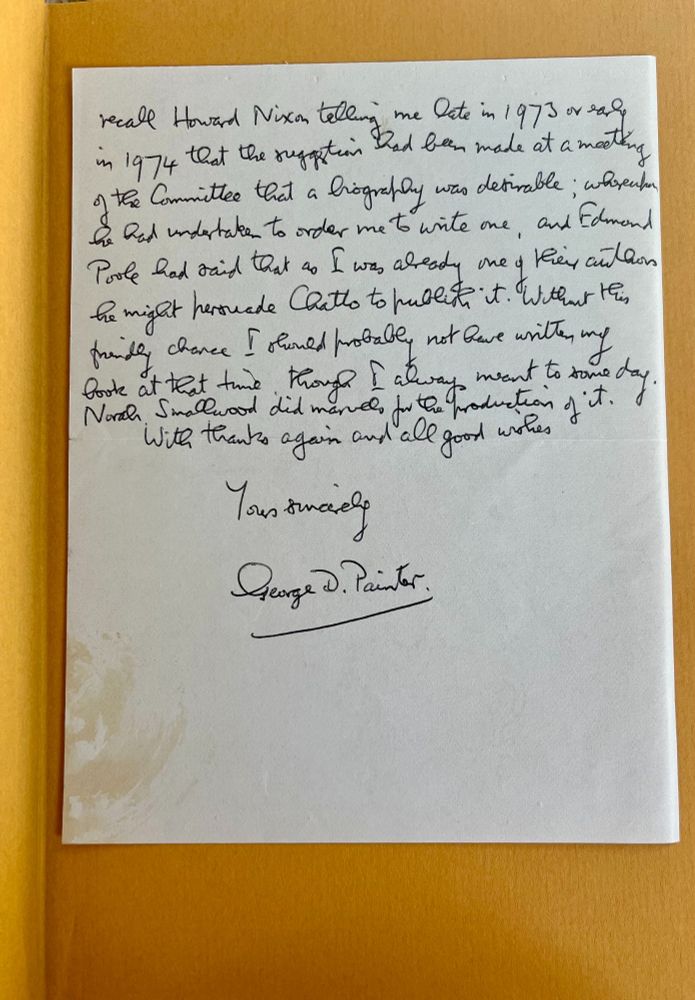 recall Howard Nixon telling me late in 1973 or early
in 1974 that the suggestion had been made at a meeting
of the Committee that a biography was desirable; whereupon
he had undertaken to order me to write one, and Edmond
Poole had said that as I was already one of their authors
he might persuade Chatto to publish it. Without this
friendly chance I should probably not have written my
book at that time, though I always meant to some day.
Norah Smallwood did marvels for the production of it.
With thanks again and all good wishes
Yours sincerely
George D. Painter.